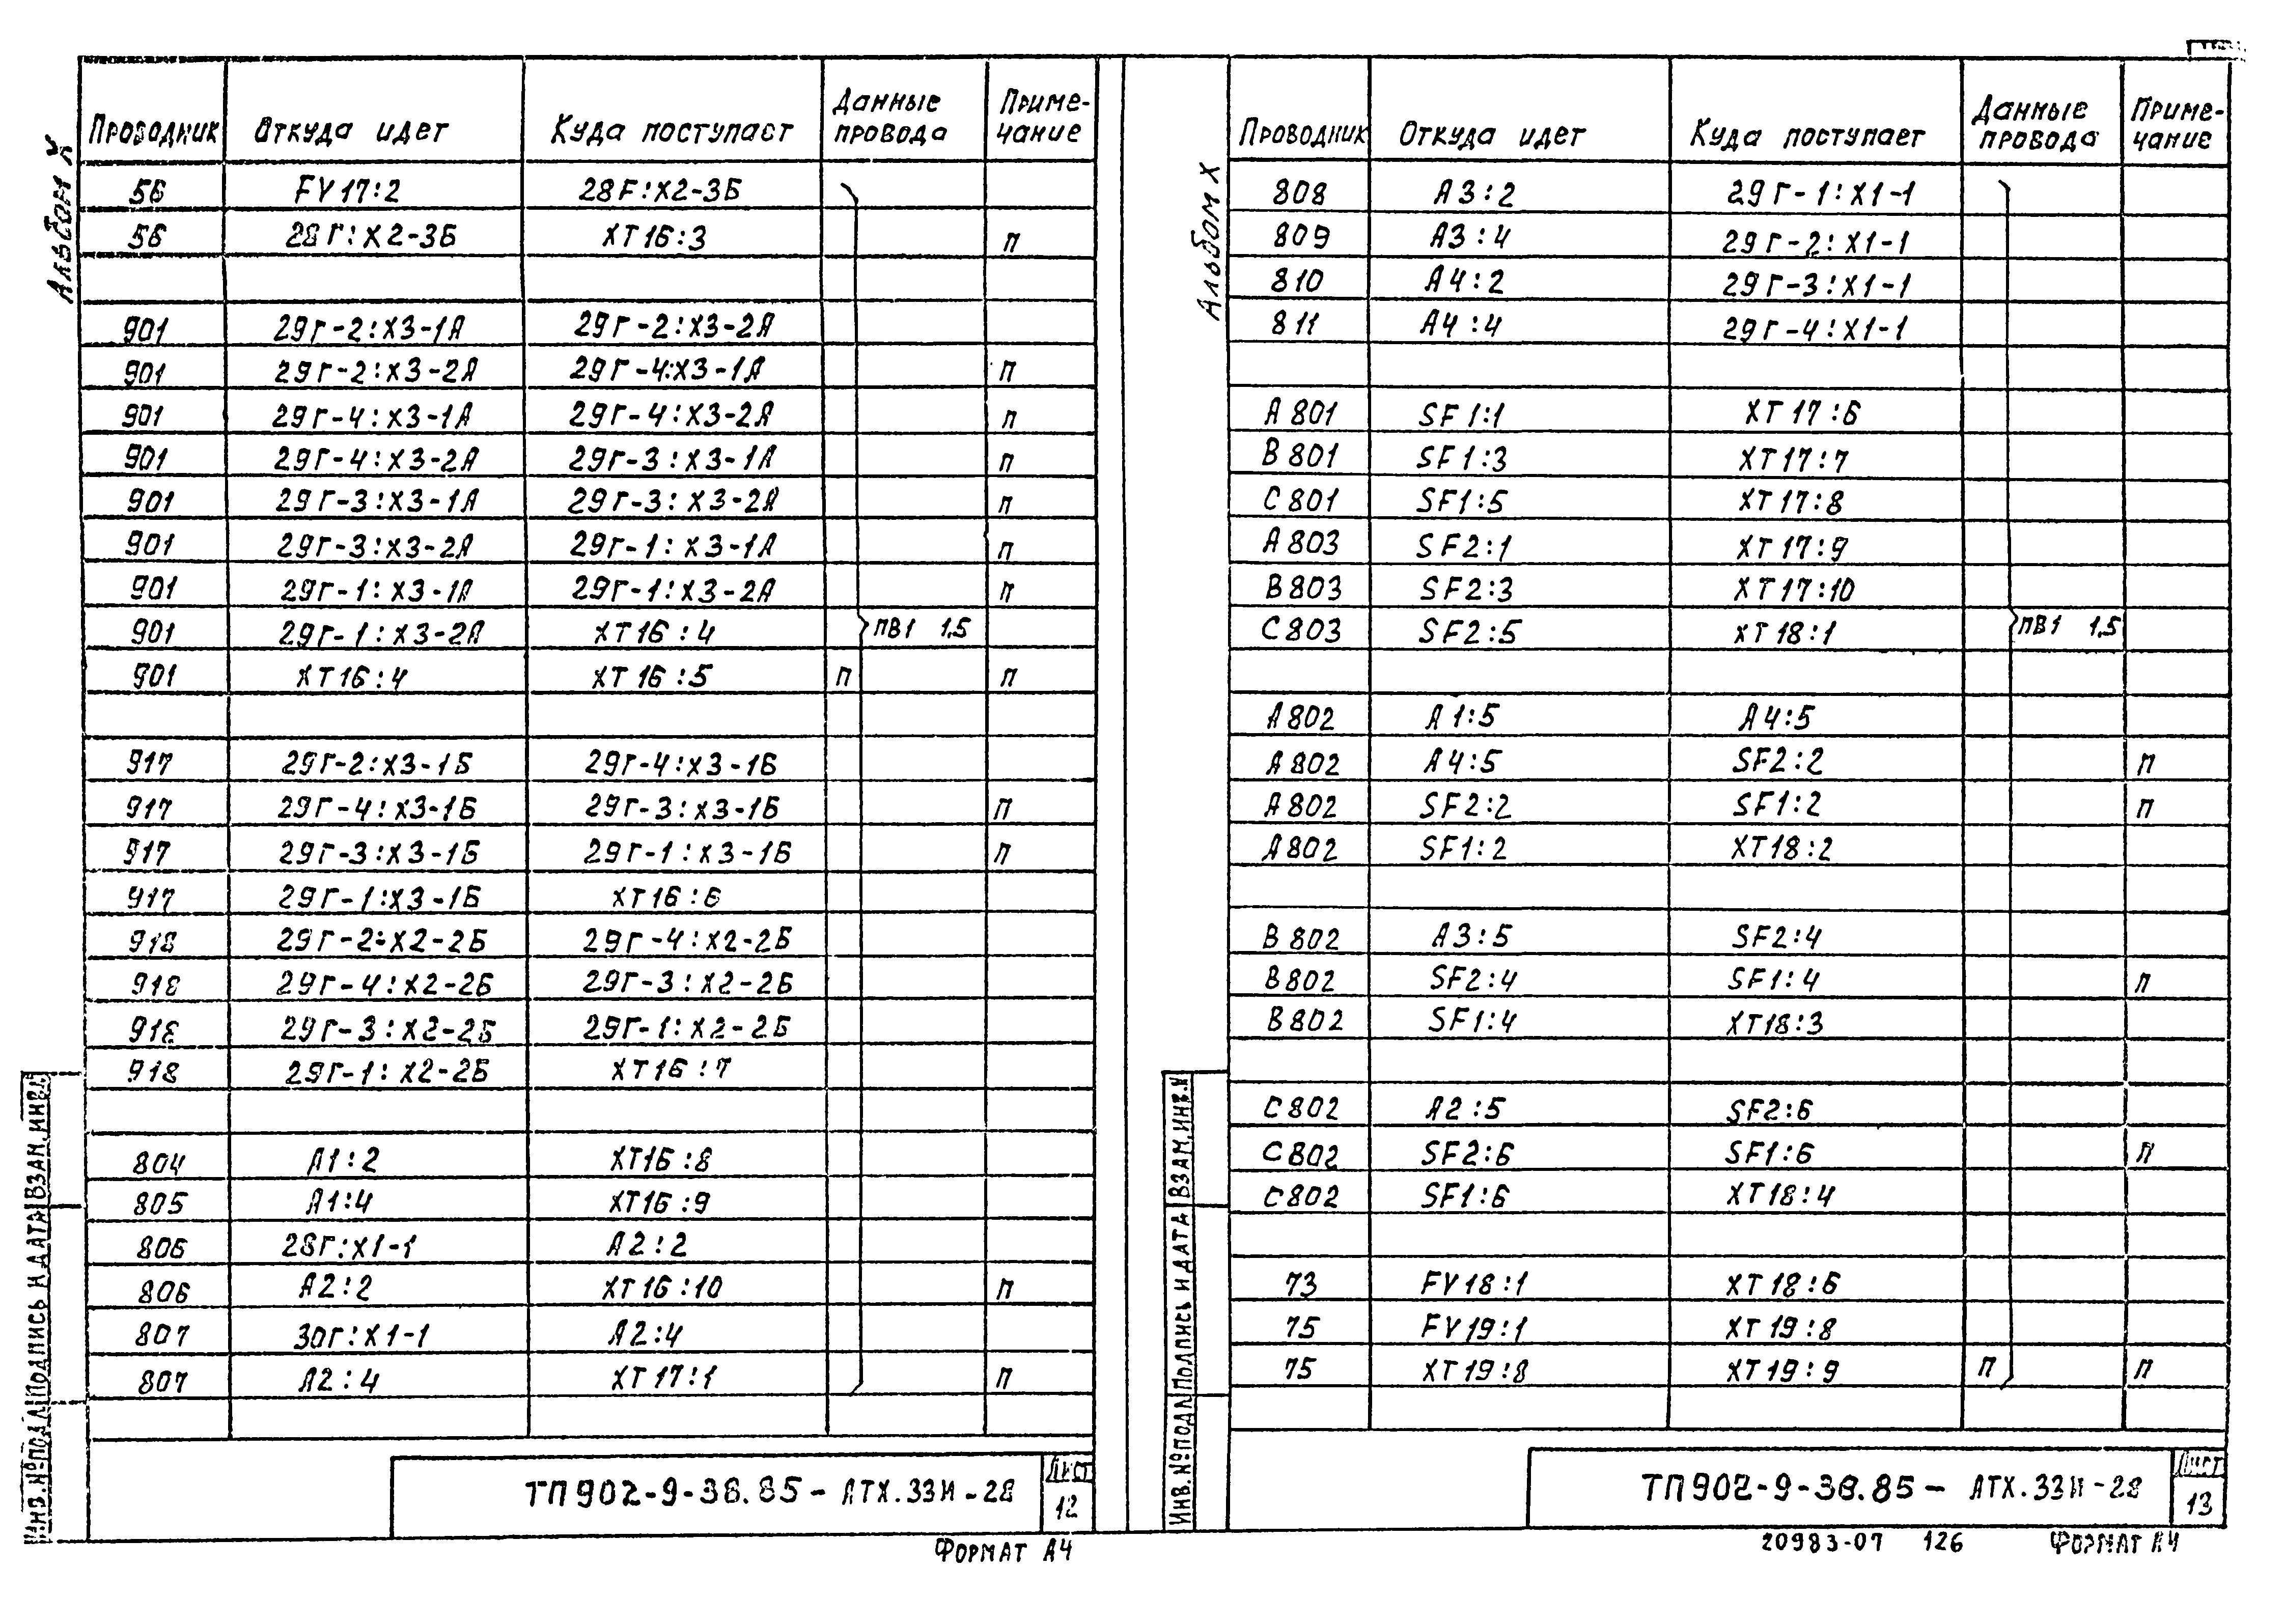 Альбом X
Проводник Откуда идет Куда поступает Данные провода Приме-чание
56 FV17:2 28Г:X2-3Б
56 28Г:X2-3Б XT16:3 п
901 29Г-2:X3-1А 29Г-2:X3-2А
901 29Г-2:X3-2А 29Г-4:X3-1А п
901 29Г-4:X3-1А 29Г-4:X3-2А п
901 29Г-4:X3-2А 29Г-3:X3-1А п
901 29Г-3:X3-1А 29Г-3:X3-2А п
901 29Г-3:X3-2А 29Г-1:X3-1А п
901 29Г-1:X3-1А 29Г-1:X3-2А п
901 29Г-1:X3-2А XT16:4 ПВ1 1,5
901 XT16:4 XT16:5 п п
917 29Г-2:X3-1Б 29Г-4:X3-1Б
917 29Г-4:X3-1Б 29Г-3:X3-1Б п
917 29Г-3:X3-1Б 29Г-1:X3-1Б п
917 29Г-1:X3-1Б XT16:6
918 29Г-2:X2-2Б 29Г-4:X2-2Б
918 29Г-4:X2-2Б 29Г-3:X2-2Б
918 29Г-3:X2-2Б 29Г-1:X2-2Б
918 29Г-1:X2-2Б XT16:7
804 А1:2 XT16:8
805 А1:4 XT16:9
806 28Г:X1-1 А2:2
806 А2:2 XT16:10 п
807 30Г:X1-1 А2:4
807 А2:4 XT17:1 п
ИНВ.№ПОДЛ ПОДПИСЬ И ДАТА ВЗАМ.ИНВ.№
ТП902-9-38.85- АТХ.33И-28
Лист
12
ФОРМАТ А4
Альбом X
Проводник Откуда идет Куда поступает Данные провода Приме-чание
808 А3:2 29Г-1:X1-1
809 А3:4 29Г-2:X1-1
810 А4:2 29Г-3:X1-1
811 А4:4 29Г-4:X1-1
А801 SF1:1 XT17:6
В801 SF1:3 XT17:7
С801 SF1:5 XT17:8
А803 SF2:1 XT17:9
В803 SF2:3 XT17:10
С803 SF2:5 XT18:1 ПВ1 1,5
А802 А1:5 А4:5
А802 А4:5 SF2:2 п
А802 SF2:2 SF1:2 п
А802 SF1:2 XT18:2
В802 А3:5 SF2:4
В802 SF2:4 SF1:4 п
В802 SF1:4 XT18:3
С802 А2:5 SF2:6
С802 SF2:6 SF1:6 п
С802 SF1:6 XT18:4
73 FV18:1 XT18:6
75 FV19:1 XT19:8
75 XT19:8 XT19:9 п п
ИНВ.№ПОДЛ ПОДПИСЬ И ДАТА ВЗАМ.ИНВ.№
ТП902-9-38.85- АТХ.33И-28
Лист
13
20983-07 126 ФОРМАТ А4